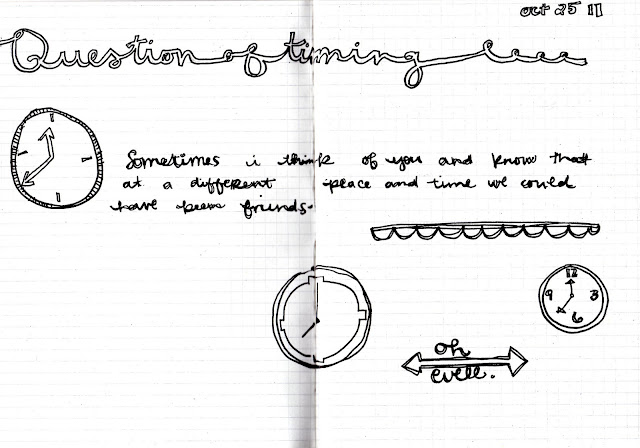 oct 25 11
Question of timing
Sometimes i think of you and know that
at a different place and time we could
have been friends.
12
9 3
6
oh
well.